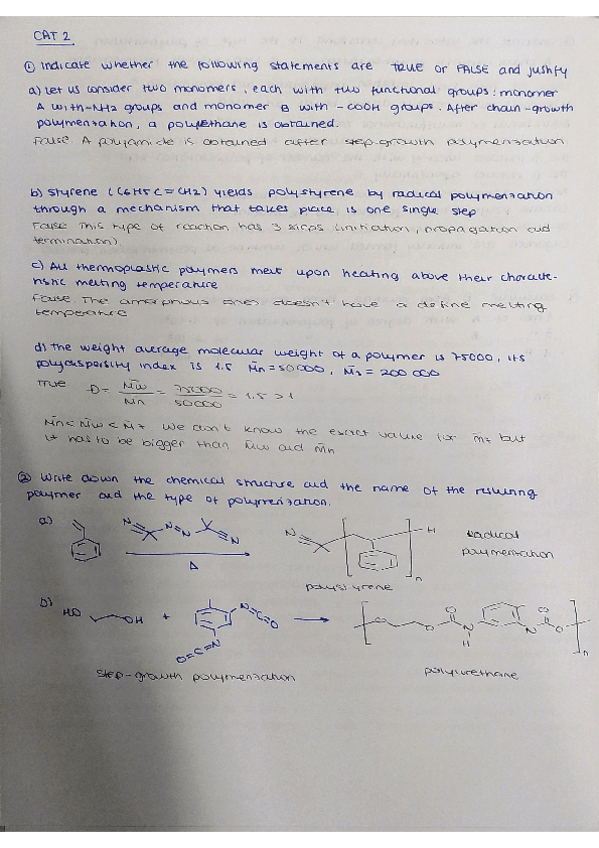 CAT 2
① Indicate whether the following statements are TRUE or FALSE and justify
a) Let us consider two monomers, each with two functional groups: monomer
A with -NH2 groups and monomer B with -COOH groups. After chain-growth
polymerization, a polyethane is obtained.
False A polyamide is obtained after step-growth polymerization
b) Styrene (C6H5C=CH2) yields polystyrene by radical polymerization
through a mechanism that takes place is one single step
False This type of reaction has 3 steps (initiation, propagation and
termination)
c) All thermoplastic polymers melt upon heating above their characte-
ristic melting temperature
False. The amorphous ones doesn't have a define melting
temperature
d) The weight average molecular weight of a polymer is 75000, its
polydispersity index is 1.5 M̄n = 50000, M̄z = 200 000
True Đ = M̄w / M̄n = 75000 / 50000 = 1.5 > 1
M̄n < M̄w < M̄z We don't know the exact value for M̄z but
it has to be bigger than M̄w and M̄n
② Write down the chemical structure and the name of the resulting
polymer and the type of polymerization.
a) N N=N N Δ N H n Radical
polymerization
polystyrene
b) HO OH + N=C=O O=C=N O O N H O N O n
step-growth polymerization polyurethane